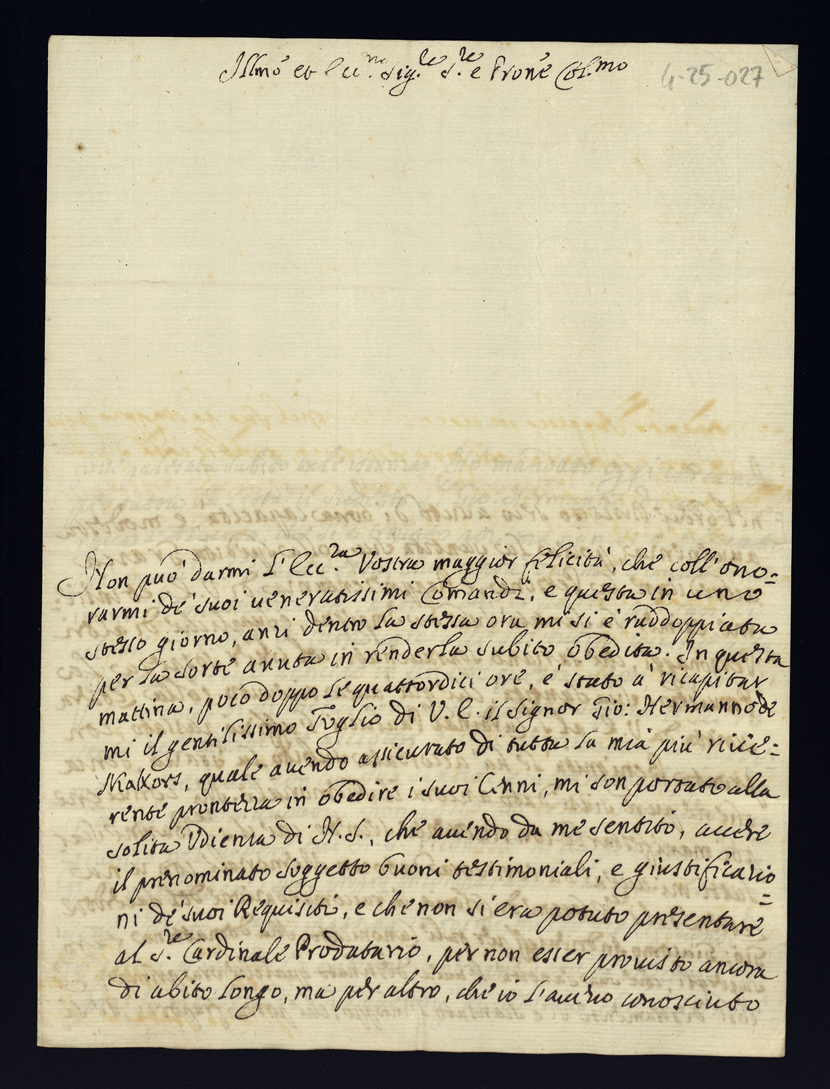 Illmo et Ecc.mo Sig.re S.re e Prone Col.mo
4-25-027
Non può darmi l'Ecc.za Vostra maggior felicità, che coll'ono=
rarmi de' suoi veneratissimi Comandi, e questa in uno
stesso giorno, anzi dentro la stessa ora mi si è raddoppiata
per la sorte avuta in renderla subito obedita. In questa
mattina, poco doppo le quattordici ore, è stato à ricapitar
mi il gentilissimo Foglio di V. E. il Signor Gio: Hermanno de
quale avendo assicurato di tutta la mia più rive=
rente prontezza in obedire i suoi Cenni, mi son portato alla
solita Udienza di N. S., che avendo da me sentito, avere
il prenominato soggetto buoni testimoniali, e giustificazio
=
ni de' suoi Requisiti, e che non si era potuto presentare
al S.re Cardinale Prodatario, per non esser provisto ancora
di abito longo, ma per altro, che io l'avevo conosciuto